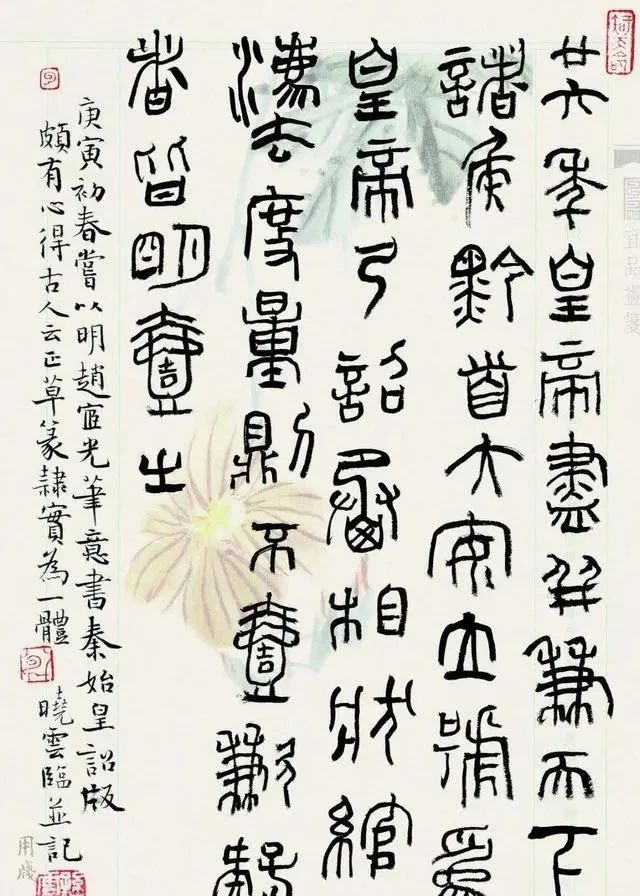 廿六年皇帝盡并兼天下
諸侯黔首大安立號為
皇帝乃詔相狀綰
灋度量則不壹歉疑
者皆明壹之
庚寅初春嘗以明趙宧光筆意書秦始皇詔版
頗有心得古人云正草篆隸實為一體 曉雲臨並記
宜品畫箋
用箋